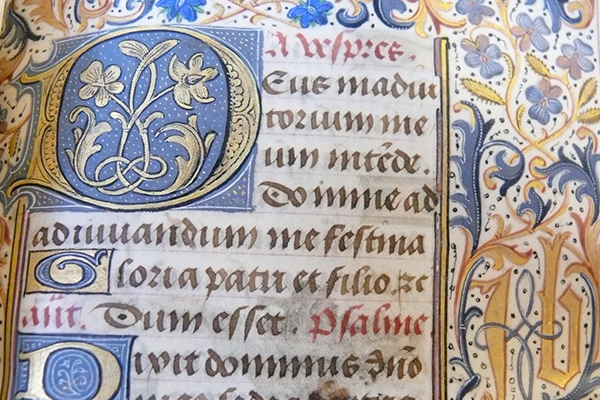 A vespres.
DEus in adiu
torium me
um intẽde.
Domine ad
adiuuandum me festina
Gloria patri et filio. ⁊c
añt. Dum esset. Psalme.
Dixit dominus dño